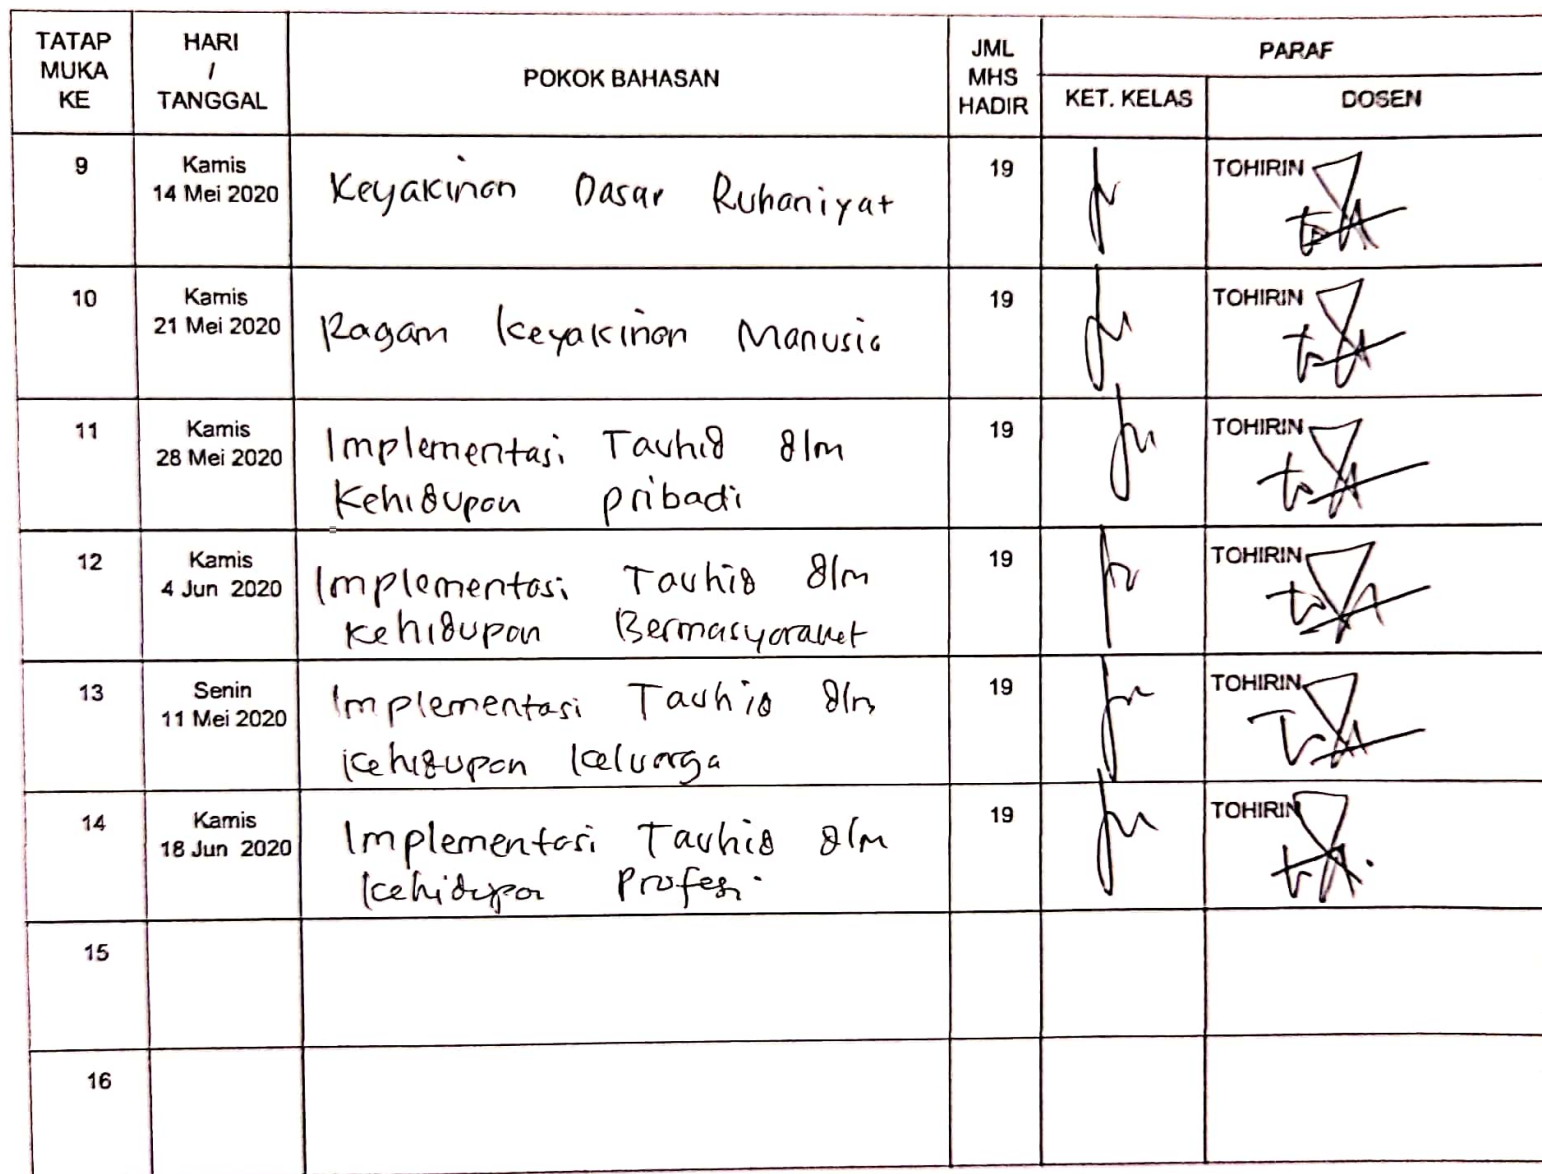 TATAP MUKA KE
HARI / TANGGAL
POKOK BAHASAN
JML MHS HADIR
PARAF
KET. KELAS
DOSEN
9
Kamis
14 Mei 2020
Keyakinan Dasar Ruhaniyat
19
TOHIRIN
10
Kamis
21 Mei 2020
Ragam Keyakinan Manusia
19
TOHIRIN
11
Kamis
28 Mei 2020
Implementasi Tauhid dlm
Kehidupan pribadi
19
TOHIRIN
12
Kamis
4 Jun 2020
Implementasi Tauhid dlm
Kehidupan Bermasyarakat
19
TOHIRIN
13
Senin
11 Mei 2020
Implementasi Tauhid dlm
Kehidupan Keluarga
19
TOHIRIN
14
Kamis
18 Jun 2020
Implementasi Tauhid dlm
Kehidupan Profesi
19
TOHIRIN
15
16